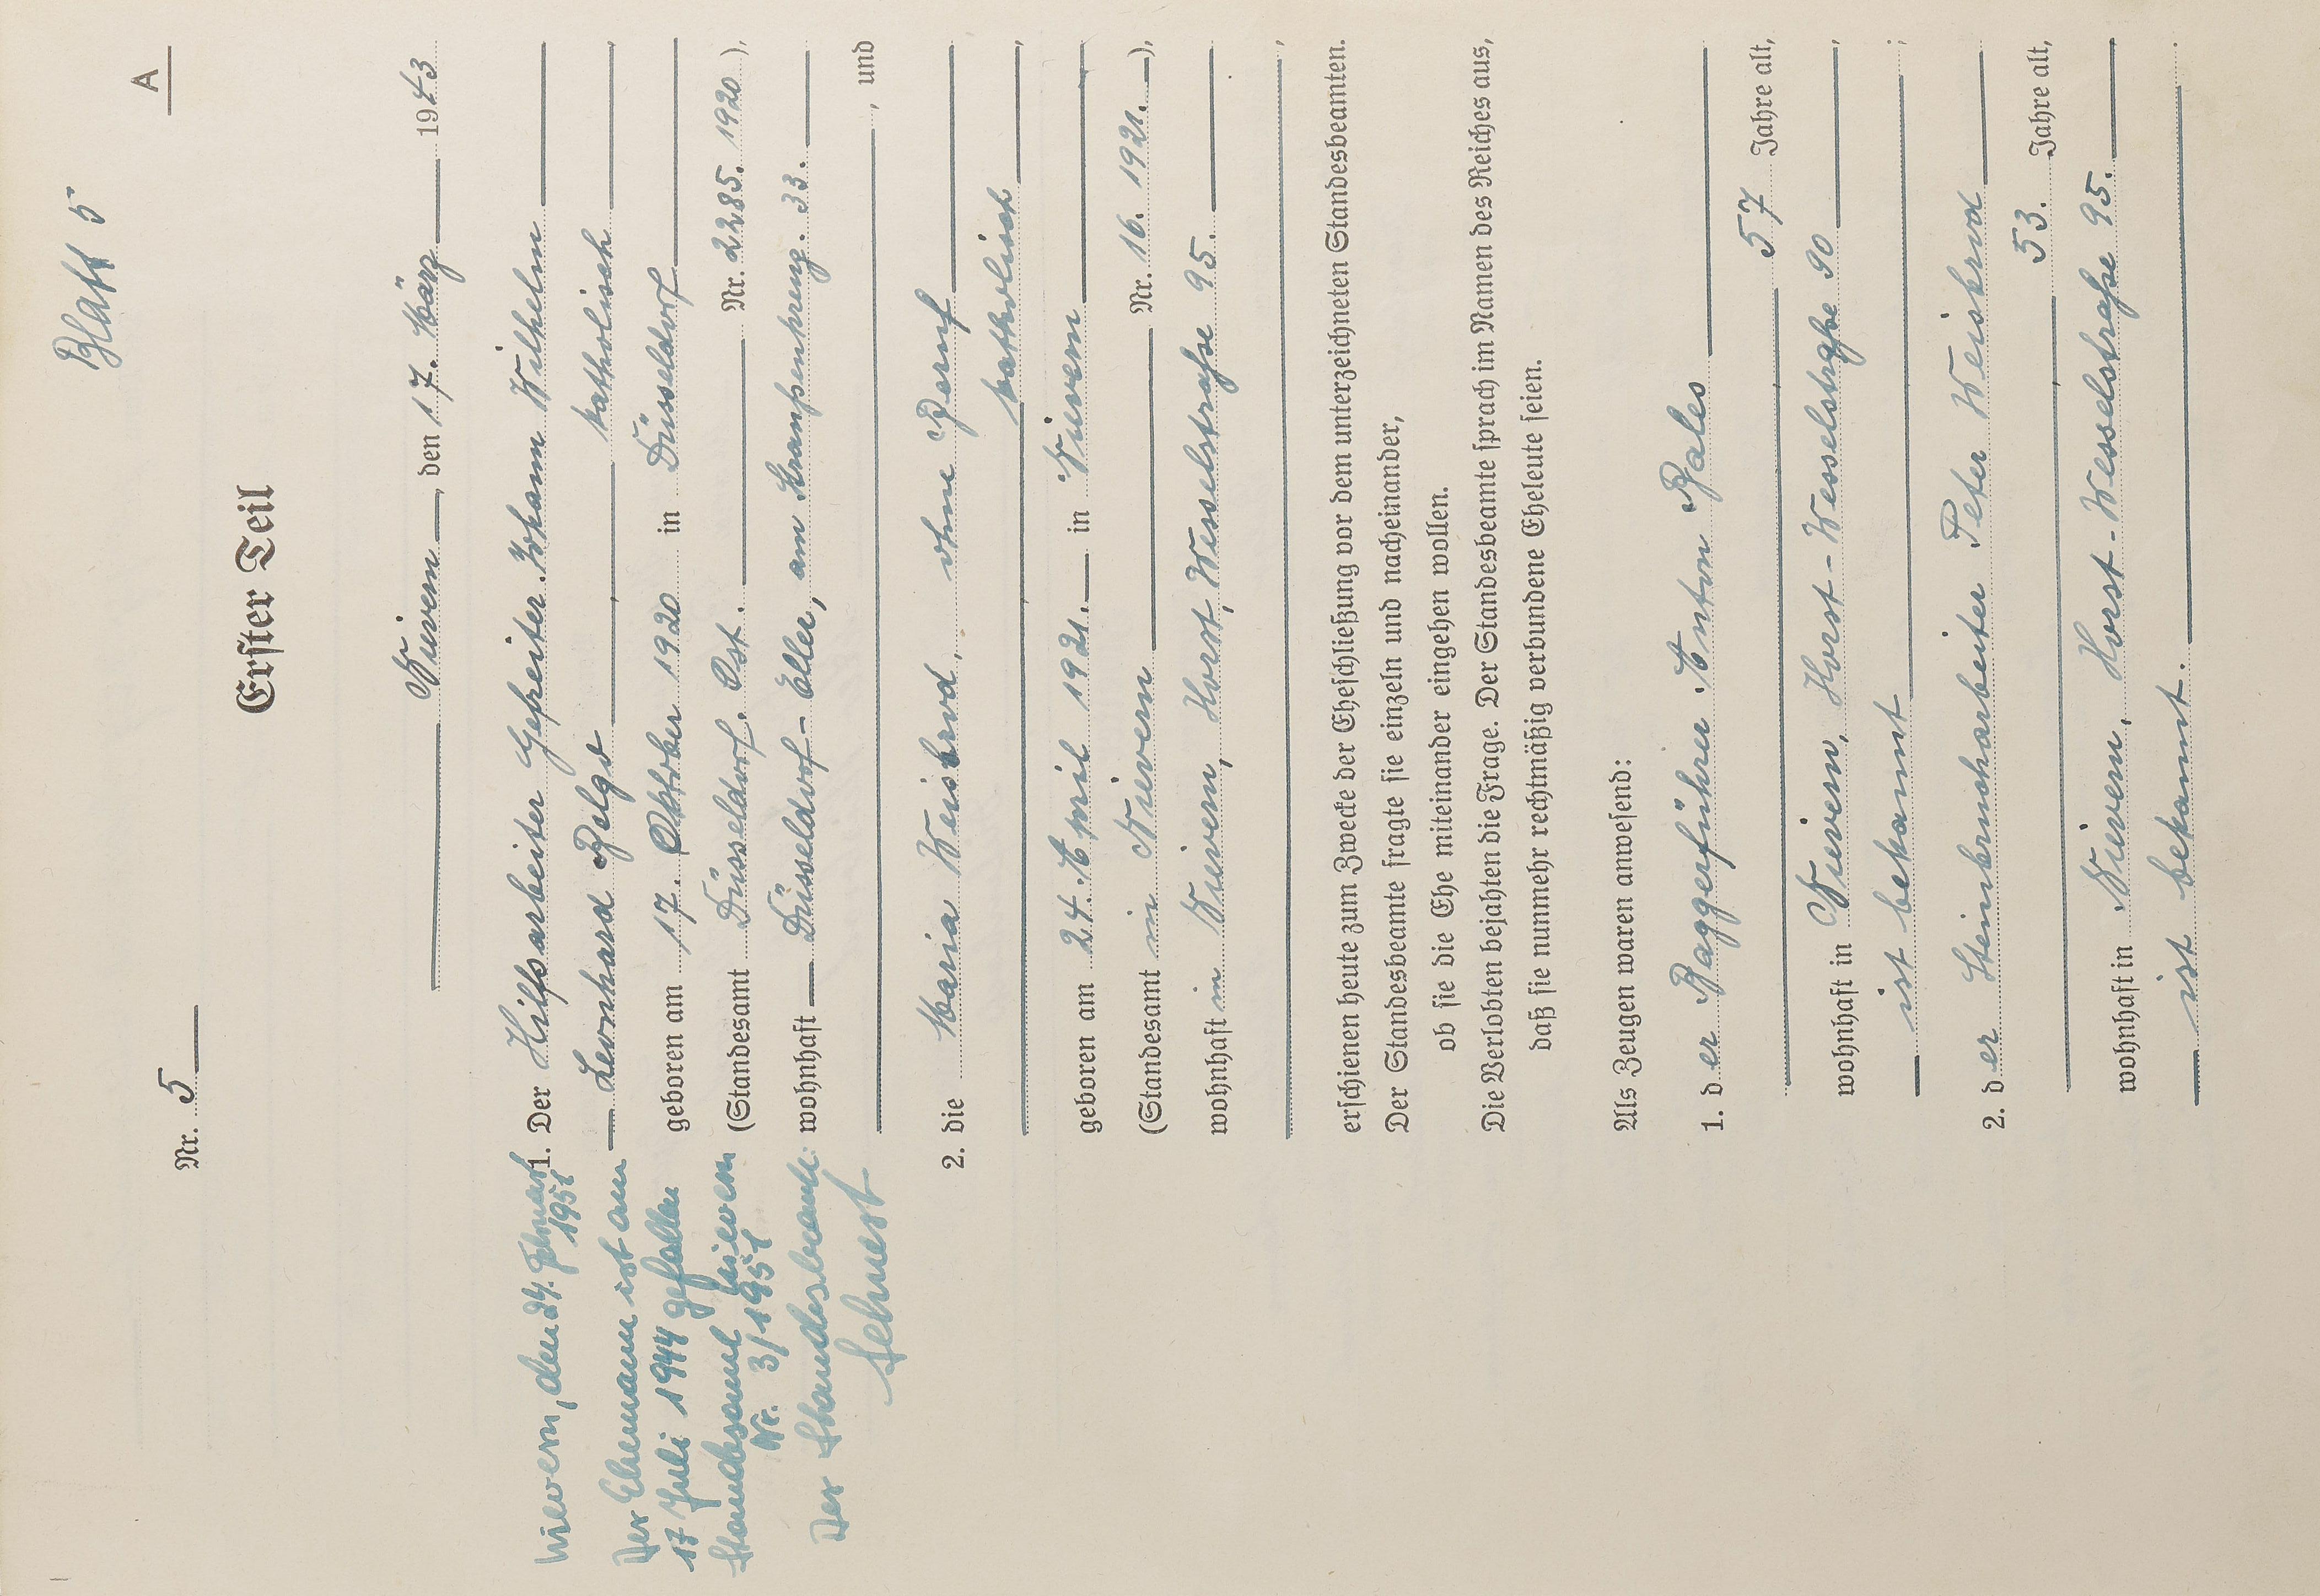 Blatt 5
A
Nr. 5
Erster Teil
Nievern, den 17. März 1943
1. Der Hilfsarbeiter Gefreiter Johann Wilhelm
Leonhard Belgo, katholisch,
geboren am 17. Oktober 1920 in Düsseldorf
(Standesamt Düsseldorf-Ost. Nr. 2285. 1920),
wohnhaft Düsseldorf-Eller, am 33.
, und
2. die Maria Weisbrod, ohne Beruf
, katholisch,
geboren am 24. April 1921. in Nievern
(Standesamt in Nievern Nr. 16. 1921.),
wohnhaft in Nievern, Horst, Wesselstraße 95.
,
erschienen heute zum Zwecke der Eheschließung vor dem unterzeichneten Standesbeamten.
Der Standesbeamte fragte sie einzeln und nacheinander,
ob sie die Ehe miteinander eingehen wollen.
Die Verlobten bejahten die Frage. Der Standesbeamte sprach im Namen des Reiches aus,
daß sie nunmehr rechtmäßig verbundene Eheleute seien.
Als Zeugen waren anwesend:
1. der Baggerführer Anton Bales
, 57 Jahre alt,
wohnhaft in Nievern, Horst-Wesselstraße 90,
ist bekannt;
2. der Steinbrucharbeiter Peter Weisbrod
, 53. Jahre alt,
wohnhaft in Nievern, Horst-Wesselstraße 95.
ist bekannt.
Nievern, den 24. Februar
1951
Der Ehemann ist am
17 Juli 1944 gefallen
Standesamt Nievern
Nr. 3/1951
Der Standesbeamte: